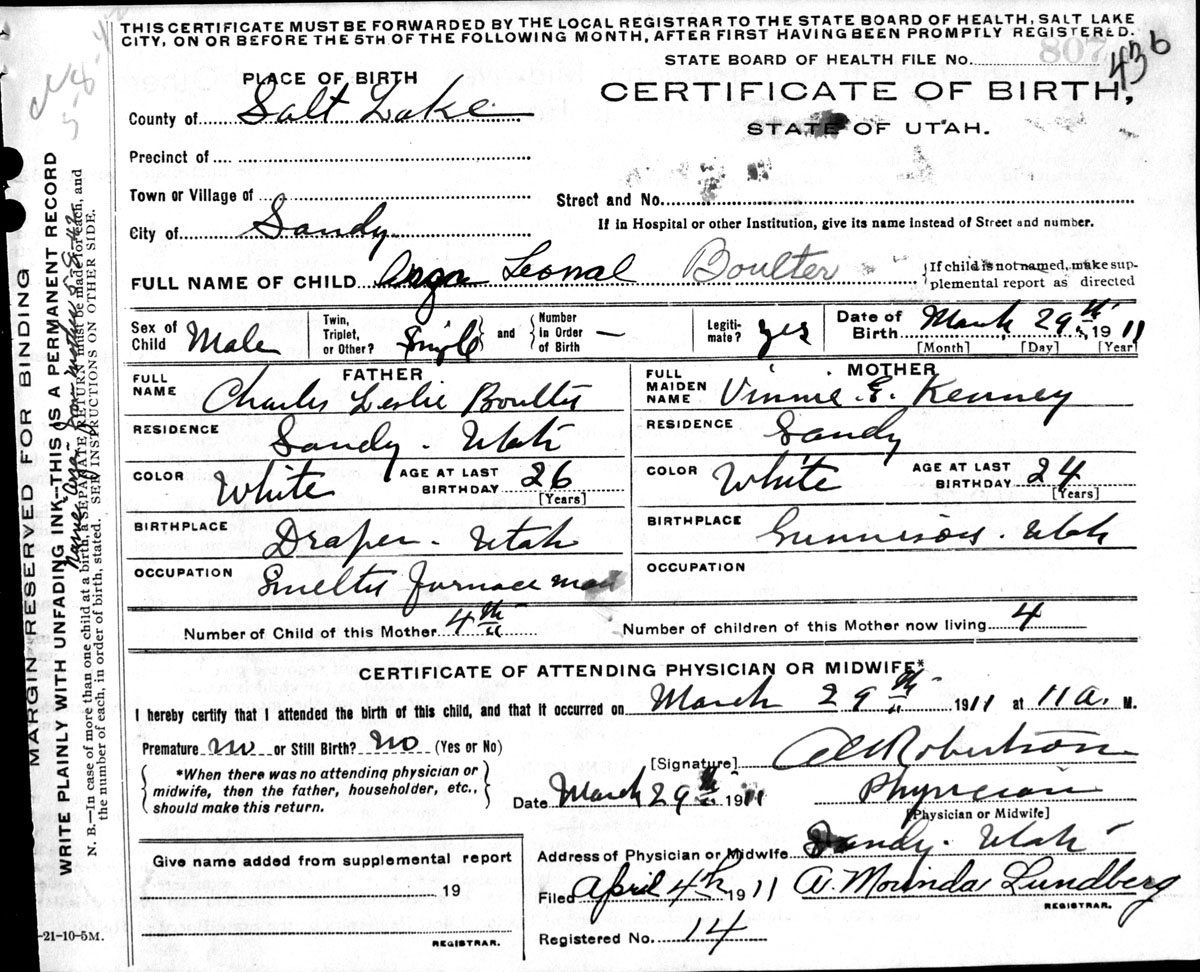 THIS CERTIFICATE MUST BE FORWARDED BY THE LOCAL REGISTRAR TO THE STATE BOARD OF HEALTH, SALT LAKE
CITY, ON OR BEFORE THE 5TH OF THE FOLLOWING MONTH, AFTER FIRST HAVING BEEN PROMPTLY REGISTERED.
STATE BOARD OF HEALTH FILE No. 807 436
PLACE OF BIRTH
CERTIFICATE OF BIRTH,
STATE OF UTAH.
County of Salt Lake
Precinct of
Town or Village of
Street and No.
City of Sandy
If in Hospital or other Institution, give its name instead of Street and number.
FULL NAME OF CHILD Leonal Boulter
If child is not named, make sup-
plemental report as directed
Sex of Child Male
Twin, Triplet, or Other? Single and Number in Order of Birth —
Legiti-mate? yes
Date of Birth March 29th 1911
[Month] [Day] [Year]
FATHER
FULL NAME Charles Leslie Boulter
RESIDENCE Sandy - Utah
COLOR White AGE AT LAST BIRTHDAY 26
[Years]
BIRTHPLACE Draper - Utah
OCCUPATION Smelter furnace man
MOTHER
FULL MAIDEN NAME Vinnie E. Kenney
RESIDENCE Sandy
COLOR White AGE AT LAST BIRTHDAY 24
[Years]
BIRTHPLACE Gunnison - Utah
OCCUPATION
Number of Child of this Mother 4th
Number of children of this Mother now living 4
CERTIFICATE OF ATTENDING PHYSICIAN OR MIDWIFE*
I hereby certify that I attended the birth of this child, and that it occurred on March 29th 1911 at 11 a. M.
Premature no or Still Birth? No (Yes or No)
*When there was no attending physician or
midwife, then the father, householder, etc.,
should make this return.
[Signature] Robertson
Date March 29th 1911
Physician
[Physician or Midwife]
Give name added from supplemental report
19
REGISTRAR.
Address of Physician or Midwife Sandy - Utah
Filed April 4th 1911 A. Morinda Lundberg
REGISTRAR.
Registered No. 14
-21-10-5M.
MARGIN RESERVED FOR BINDING
WRITE PLAINLY WITH UNFADING INK—THIS IS A PERMANENT RECORD
N. B.—In case of more than one child at a birth, a SEPARATE RETURN must be made for each, and
the number of each, in order of birth, stated. SEE INSTRUCTIONS ON OTHER SIDE.